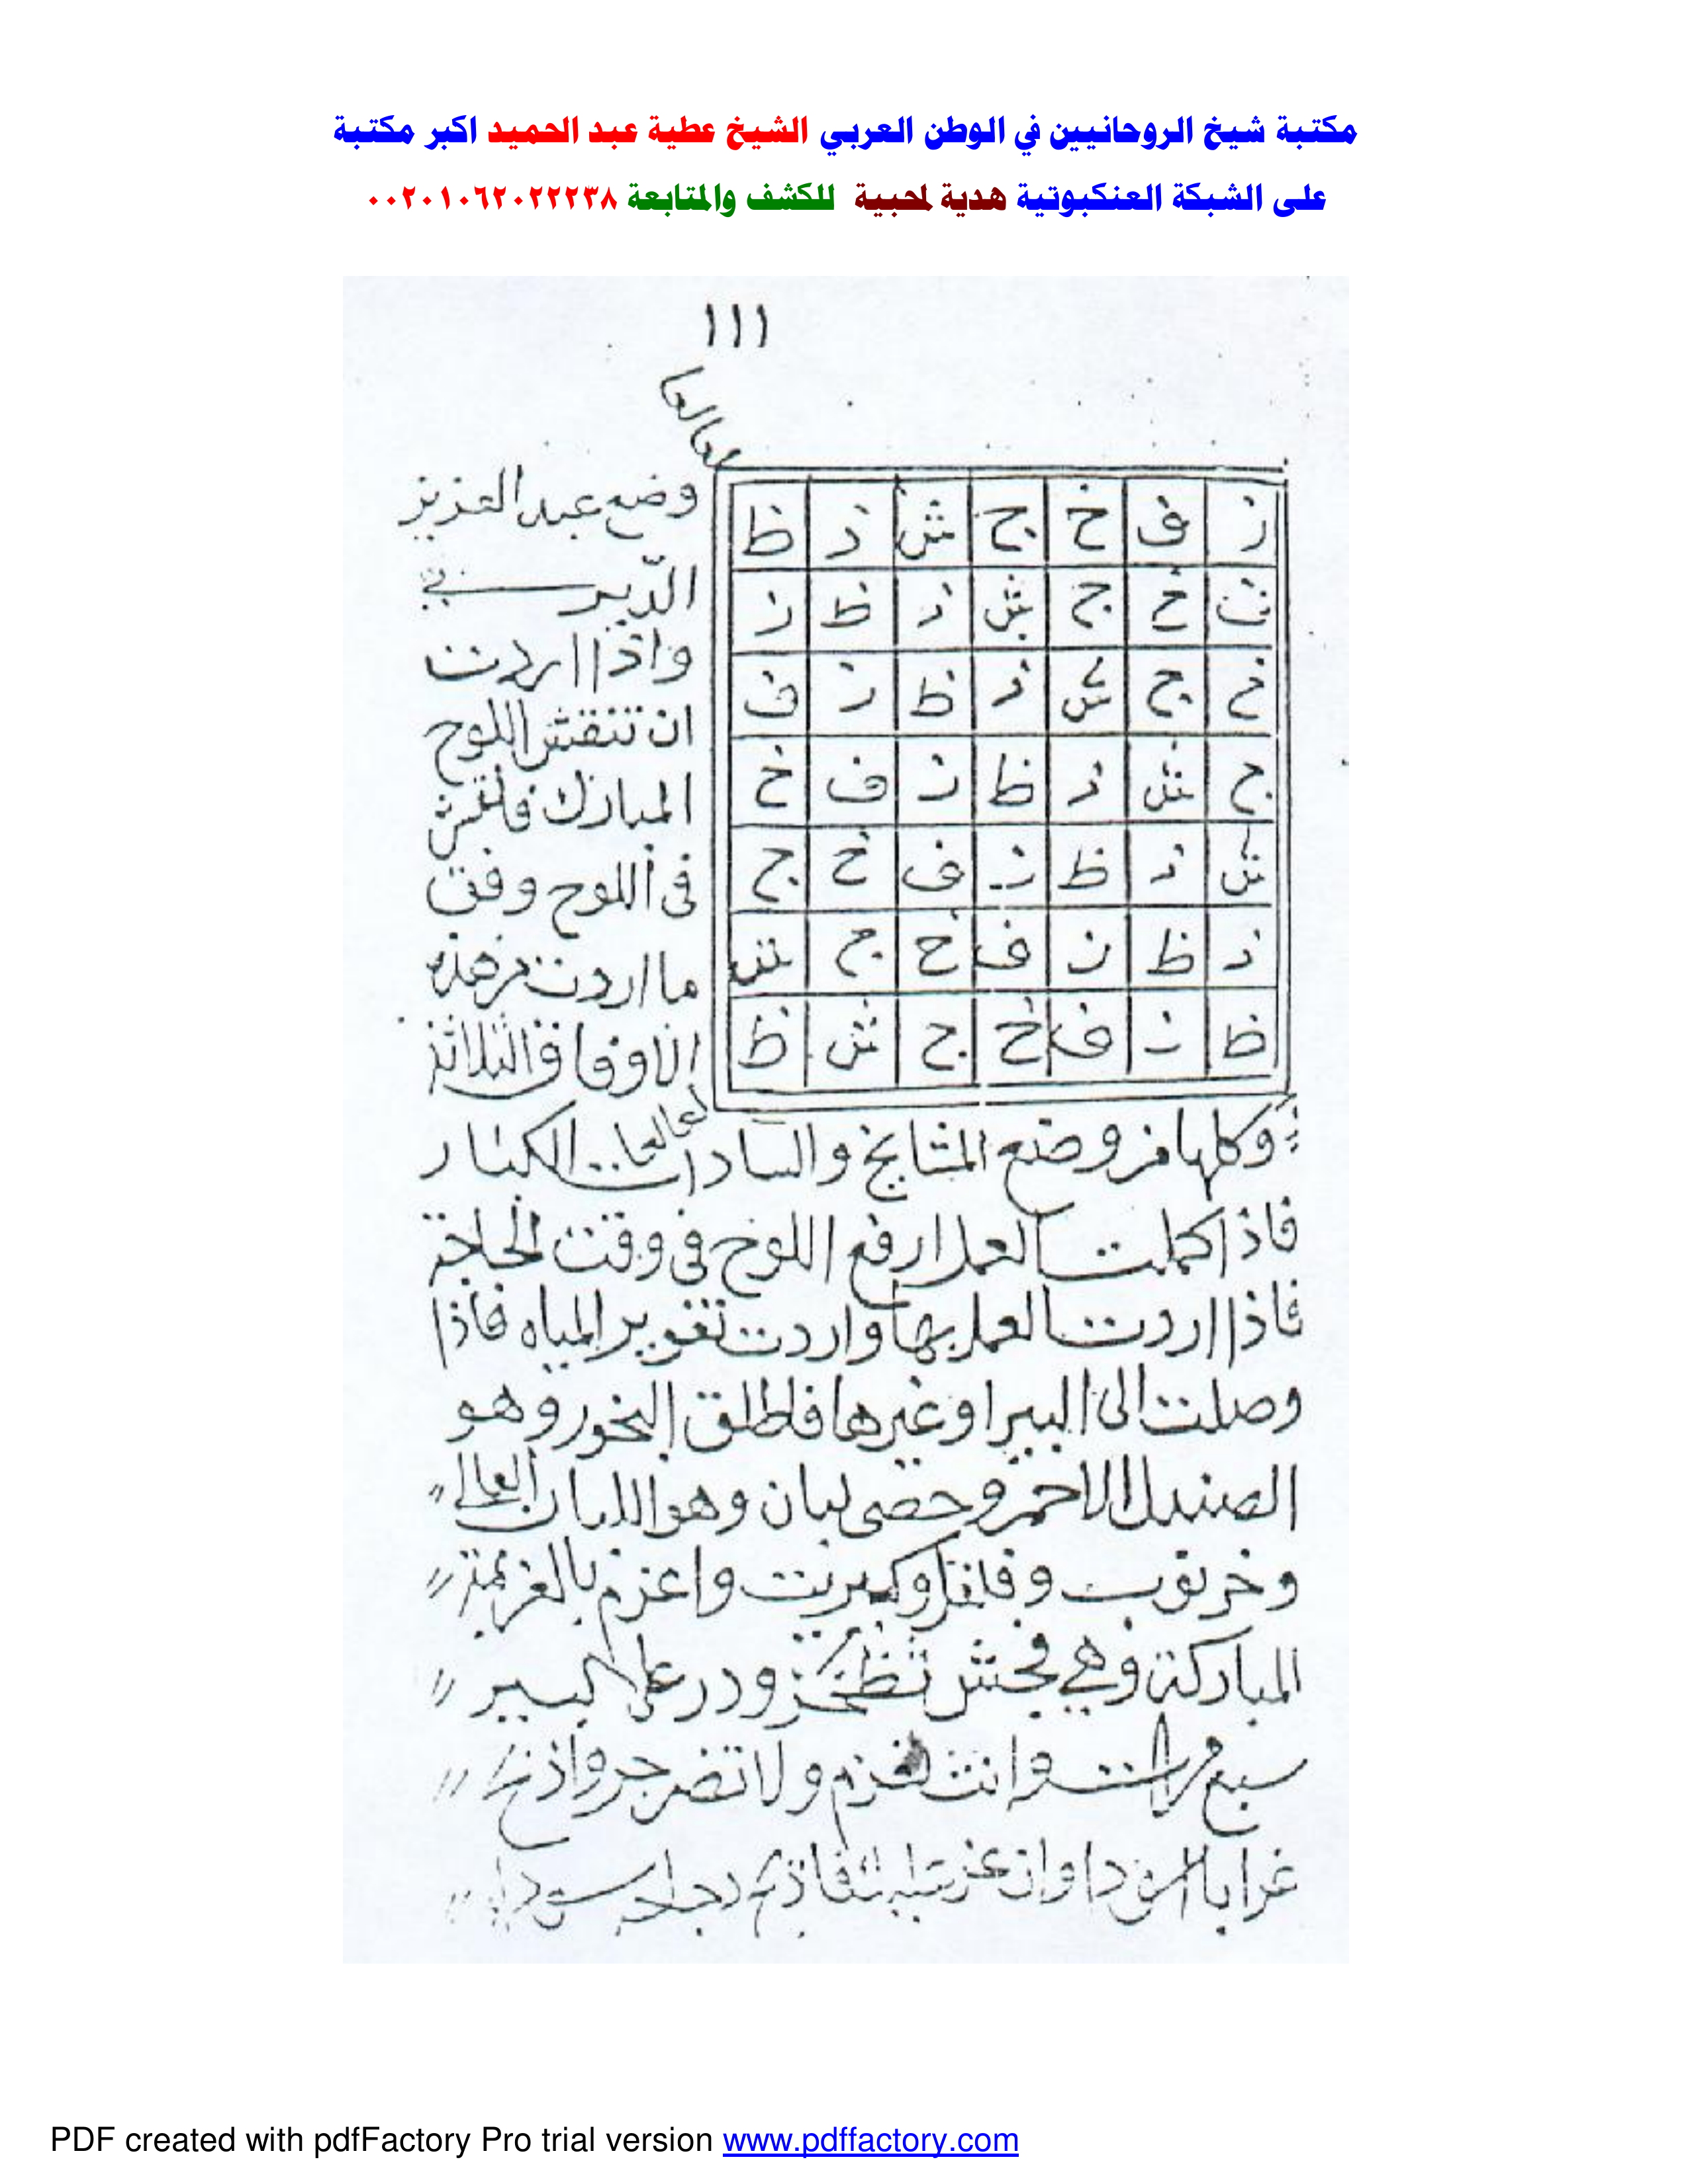 مكتبة شيخ الروحانيين في الوطن العربي الشيخ عطية عبد الحميد اكبر مكتبة
على الشبكة العنكبوتية هدية لمحبية للكشف والمتابعة ٠٠٢٠١٠٦٢٠٢٢٢٣٨
١١١
ز ف خ ج ش ذ ظ
ف خ ج ش ذ ظ ز
خ ج ش ذ ظ ز ف
ج ش ذ ظ ز ف خ
ش ذ ظ ز ف خ ج
ذ ظ ز ف خ ج ش
ظ ز ف خ ج ش ظ
وضع عبد العزيز
الديريني
واذا اردت
ان تنقش اللوح
المبارك فانقش
في اللوح وفق
ما اردت من هذه
الاوفاق الثلاثة
وكلها من وضع المشايخ والسادات الكبار
فاذا كملت العمل ارفع اللوح في وقت الحاجة
فاذا اردت العمل بها واردت تغوير المياه فاذا
وصلت الى البير او غيرها فاطلق البخور وهو
الصندل الاحمر وحصى لبان وهو اللبان
وخرنوب وفلفل وكبريت واعزم بالعزيمة
المباركة وهي فجش ثظخز ودر على البير
سبع مرات وانت تعزم ولا تضرجر واذبح
غرابا اسودا وان فاذبح سودا
PDF created with pdfFactory Pro trial version www.pdffactory.com